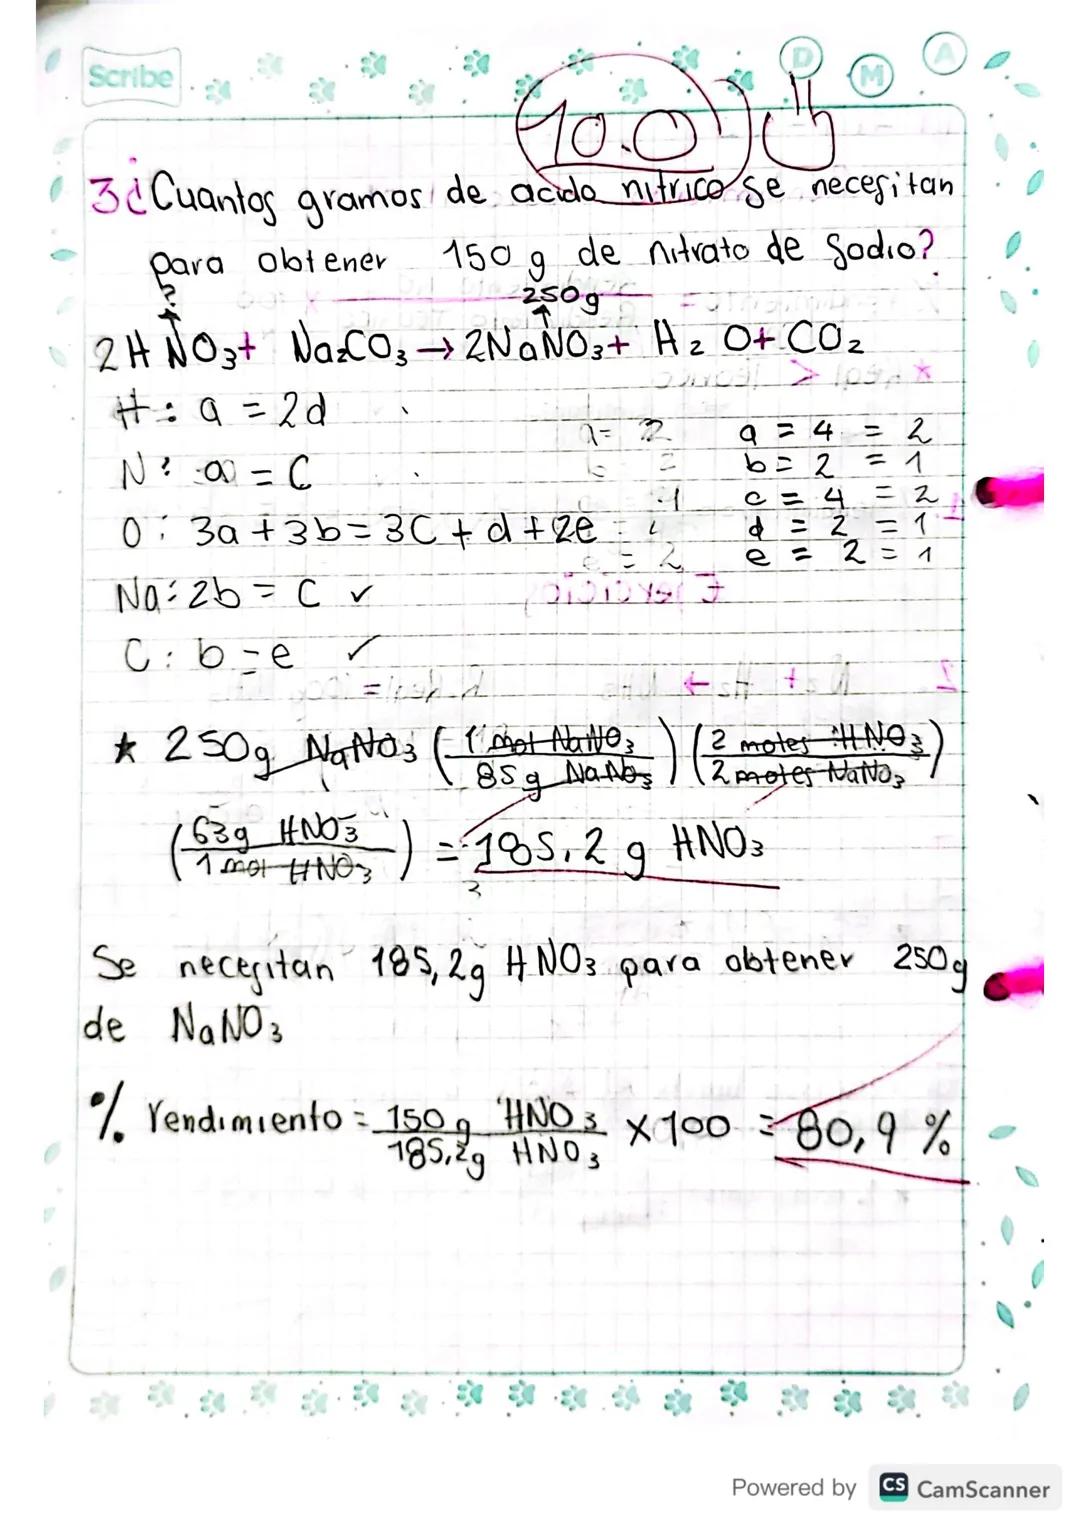 Scribe
D M A
10.0
3¿Cuantos gramos de acido nitrico se necesitan
para obtener 150 g de nitrato de Sodio?
? 250g
2HNO3+ Na2CO3 → 2NaNO3+ H2O+ CO2
H: a = 2d
a = 4 = 2
N: a = C
b = 2 = 1
c = 4 = 2
O: 3a + 3b = 3C + d + 2e
d = 2 = 1
e = 2 = 1
Na: 2b = C ✓
C: b = e ✓
★ 250g NaNO3 (1 mol NaNO3 / 85g NaNO3) (2 moles HNO3 / 2 moles NaNO3)
(63g HNO3 / 1 mol HNO3) = 185,2 g HNO3
Se necesitan 185,2g HNO3 para obtener 250g
de NaNO3
% rendimiento = 150g HNO3 / 185,2g HNO3 x 100 = 80,9 %
Powered by CS CamScanner